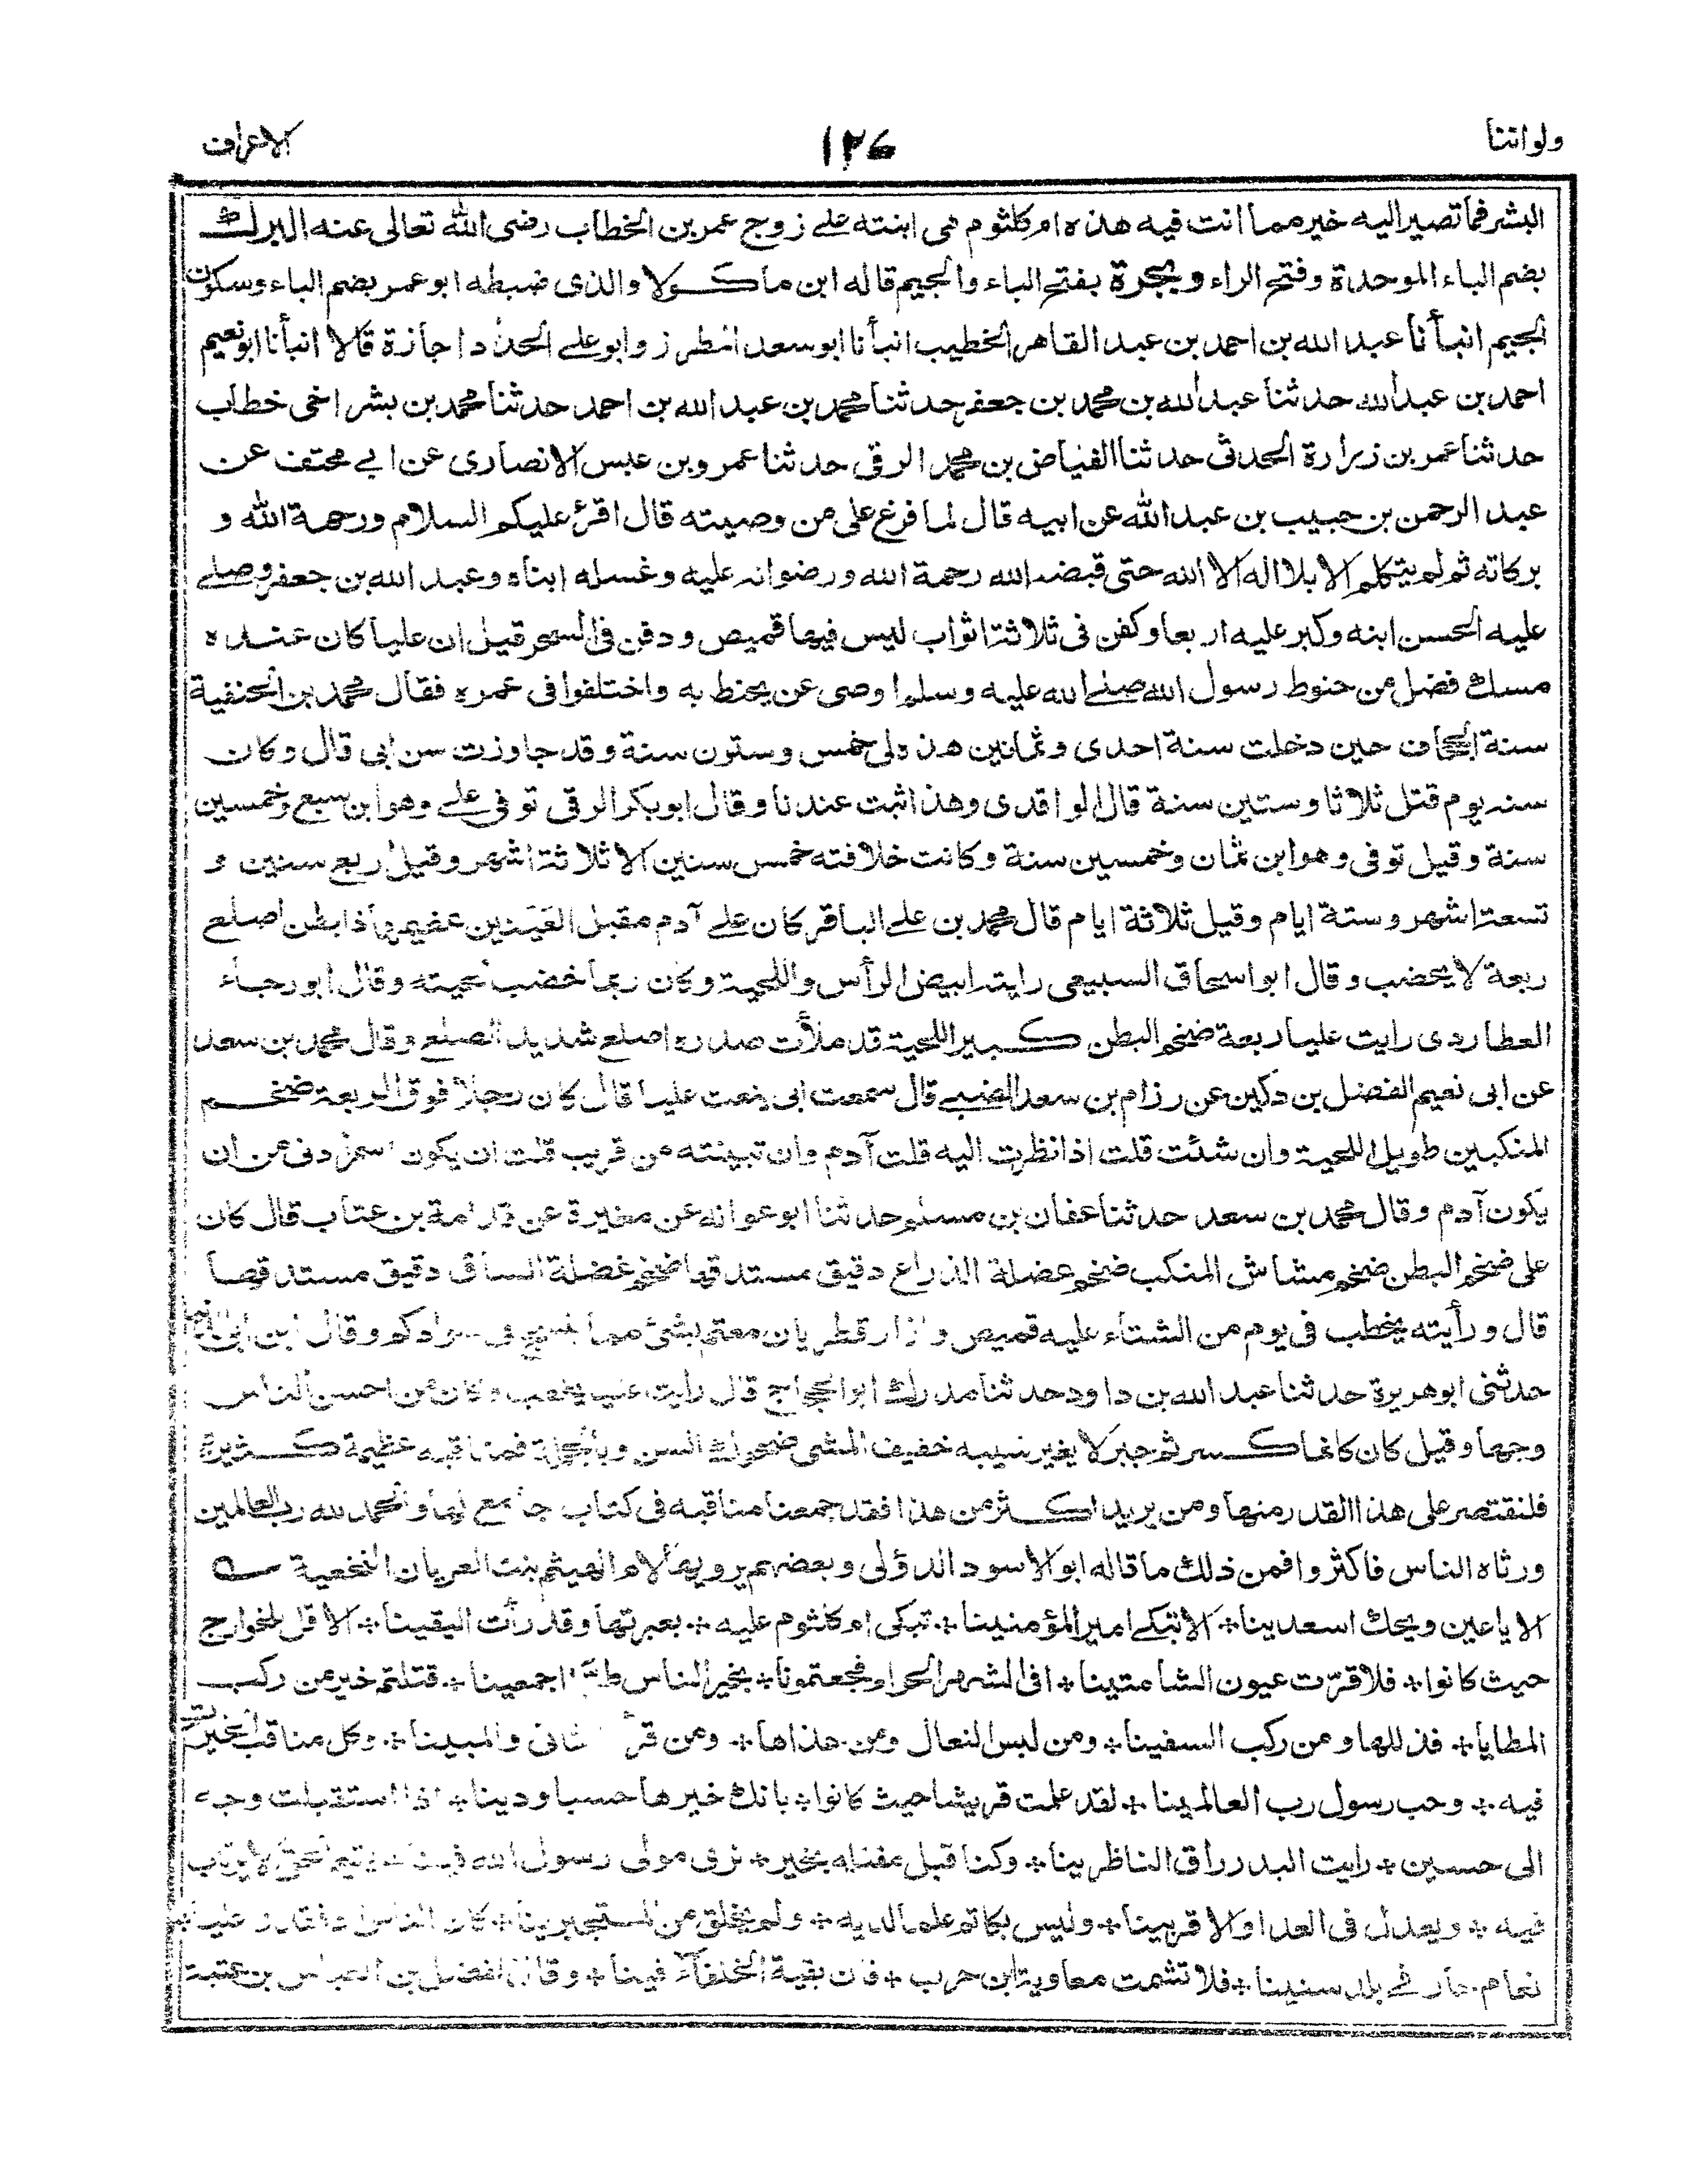 ولواننا ١٢٦ الاعراف
البشر فما تصير اليه خير مما انت فيه هذه ام كلثوم هى ابنته على زوج عمر بن الخطاب رضى الله تعالى عنه البرك
بضم الباء الموحدة وفتح الراء وبجرة بفتح الباء والجيم قاله ابن ماكولا والذى ضبطه ابو عمر بضم الباء وسكون
الجيم انبأنا عبد الله بن احمد بن عبد القاهر الخطيب انبأنا ابو سعد المطرز وابو على الحداد اجازة قالا انبأنا ابو نعيم
احمد بن عبد الله حدثنا عبد الله بن محمد بن جعفر حدثنا محمد بن عبد الله بن احمد حدثنا محمد بن بشر اخى خطاب
حدثنا عمر بن زرارة الحدثى حدثنا الفياض بن محمد الرقى حدثنا عمرو بن عبس الانصارى عن ابى مخنف عن
عبد الرحمن بن حبيب بن عبد الله عن ابيه قال لما فرغ على من وصيته قال اقرئ عليكم السلام ورحمة الله و
بركاته ثم لم يتكلم الا بلا اله الا الله حتى قبضه الله رحمة الله ورضوانه عليه وغسله ابناه وعبد الله بن جعفر وصلى
عليه الحسن ابنه وكبر عليه اربعا وكفن فى ثلاثة اثواب ليس فيها قميص ودفن فى السحر قيل ان عليا كان عنده
مسك فضل من حنوط رسول الله صلى الله عليه وسلم اوصى عن يحنط به واختلفوا فى عمره فقال محمد بن الحنفية
سنة الجحاف حين دخلت سنة احدى وثمانين هذه لى خمس وستون سنة وقد جاوزت سن ابى قال وكان
سنه يوم قتل ثلاثا وستين سنة قال الواقدى وهذا اثبت عندنا وقال ابو بكر الرقى توفى على وهو ابن سبع وخمسين
سنة وقيل توفى وهو ابن ثمان وخمسين سنة وكانت خلافته خمس سنين الا ثلاثة اشهر وقيل اربع سنين و
تسعة اشهر وستة ايام وقيل ثلاثة ايام قال محمد بن على الباقر كان على آدم مقبل العينين عظيمها ذا بطن اصلع
ربعة لا يخضب وقال ابو اسحاق السبيعى رايته ابيض الرأس واللحية وكان ربما خضب لحيته وقال ابو رجاء
العطاردى رايت عليا ربعة ضخم البطن كبير اللحية قد ملأت صدره اصلع شديد الصلع وقال محمد بن سعد
عن ابى نعيم الفضل بن دكين عن رزام بن سعد الضبى قال سمعت ابى ينعت عليا قال كان رجلا فوق الربعة ضخم
المنكبين طويل اللحية وان شئت قلت اذا نظرت اليه قلت آدم وان تبينته من قريب قلت ان يكون اسمر ادنى من ان
يكون آدم وقال محمد بن سعد حدثنا عفان بن مسلم حدثنا ابو عوانه عن مغيرة عن قدامة بن عتاب قال كان
على ضخم البطن ضخم مشاش المنكب ضخم عضلة الذراع دقيق مستدقها ضخم عضلة الساق دقيق مستدقها
قال ورأيته يخطب فى يوم من الشتاء عليه قميص وازار قطريان معتم بشئ مما ينسج فى سوادكم وقال ابن ابى الدنيا
حدثنى ابو هريرة حدثنا عبد الله بن داود حدثنا مدرك ابو الحجاج قال رايت عليا يخطب وكان من احسن الناس
وجها وقيل كان كانما كسر ثم جبر لا يغير شيبه خفيف المشى ضحوك السن وبالجملة فمناقبه عظيمة كثيرة
فلنقتصر على هذا القدر منها ومن يريد اكثر من هذا فقد جمعنا مناقبه فى كتاب جامع لها والحمد لله رب العالمين
ورثاه الناس فاكثروا فمن ذلك ما قاله ابو الاسود الدؤلى وبعضهم يرويها لام الهيثم بنت العريان النخعية
الا ياعين ويحك اسعدينا * الا تبكى امير المؤمنينا * تبكى ام كلثوم عليه * بعبرتها وقد رأت اليقينا * الا قل للخوارج
حيث كانوا * فلا قرت عيون الشامتينا * افى الشهر الحرام فجعتمونا * بخير الناس طرا اجمعينا * قتلتم خير من ركب
المطايا * فذللها ومن ركب السفينا * ومن لبس النعال ومن حذاها * ومن قرأ المثانى والمبينا * وكل مناقب الخيرات
فيه * وحب رسول رب العالمينا * لقد علمت قريشا حيث كانوا * بانك خيرها حسبا ودينا * اذا استقبلت وجه
ابى حسين * رايت البدر راق الناظرينا * وكنا قبل مقتله بخير * نرى مولى رسول الله فينا * يقيم الحق لا يرتاب
فيه * ويعدل فى العدا والاقربينا * وليس بكاتم علما لديه * ولم يخلق من المتجبرينا * كان الناس اذ فقدوا عليا *
نعام حار فى بلد سنينا * فلا تشمت معاوية ابن حرب * فان بقية الخلفاء فينا * وقال الفضل بن العباس بن عتبة